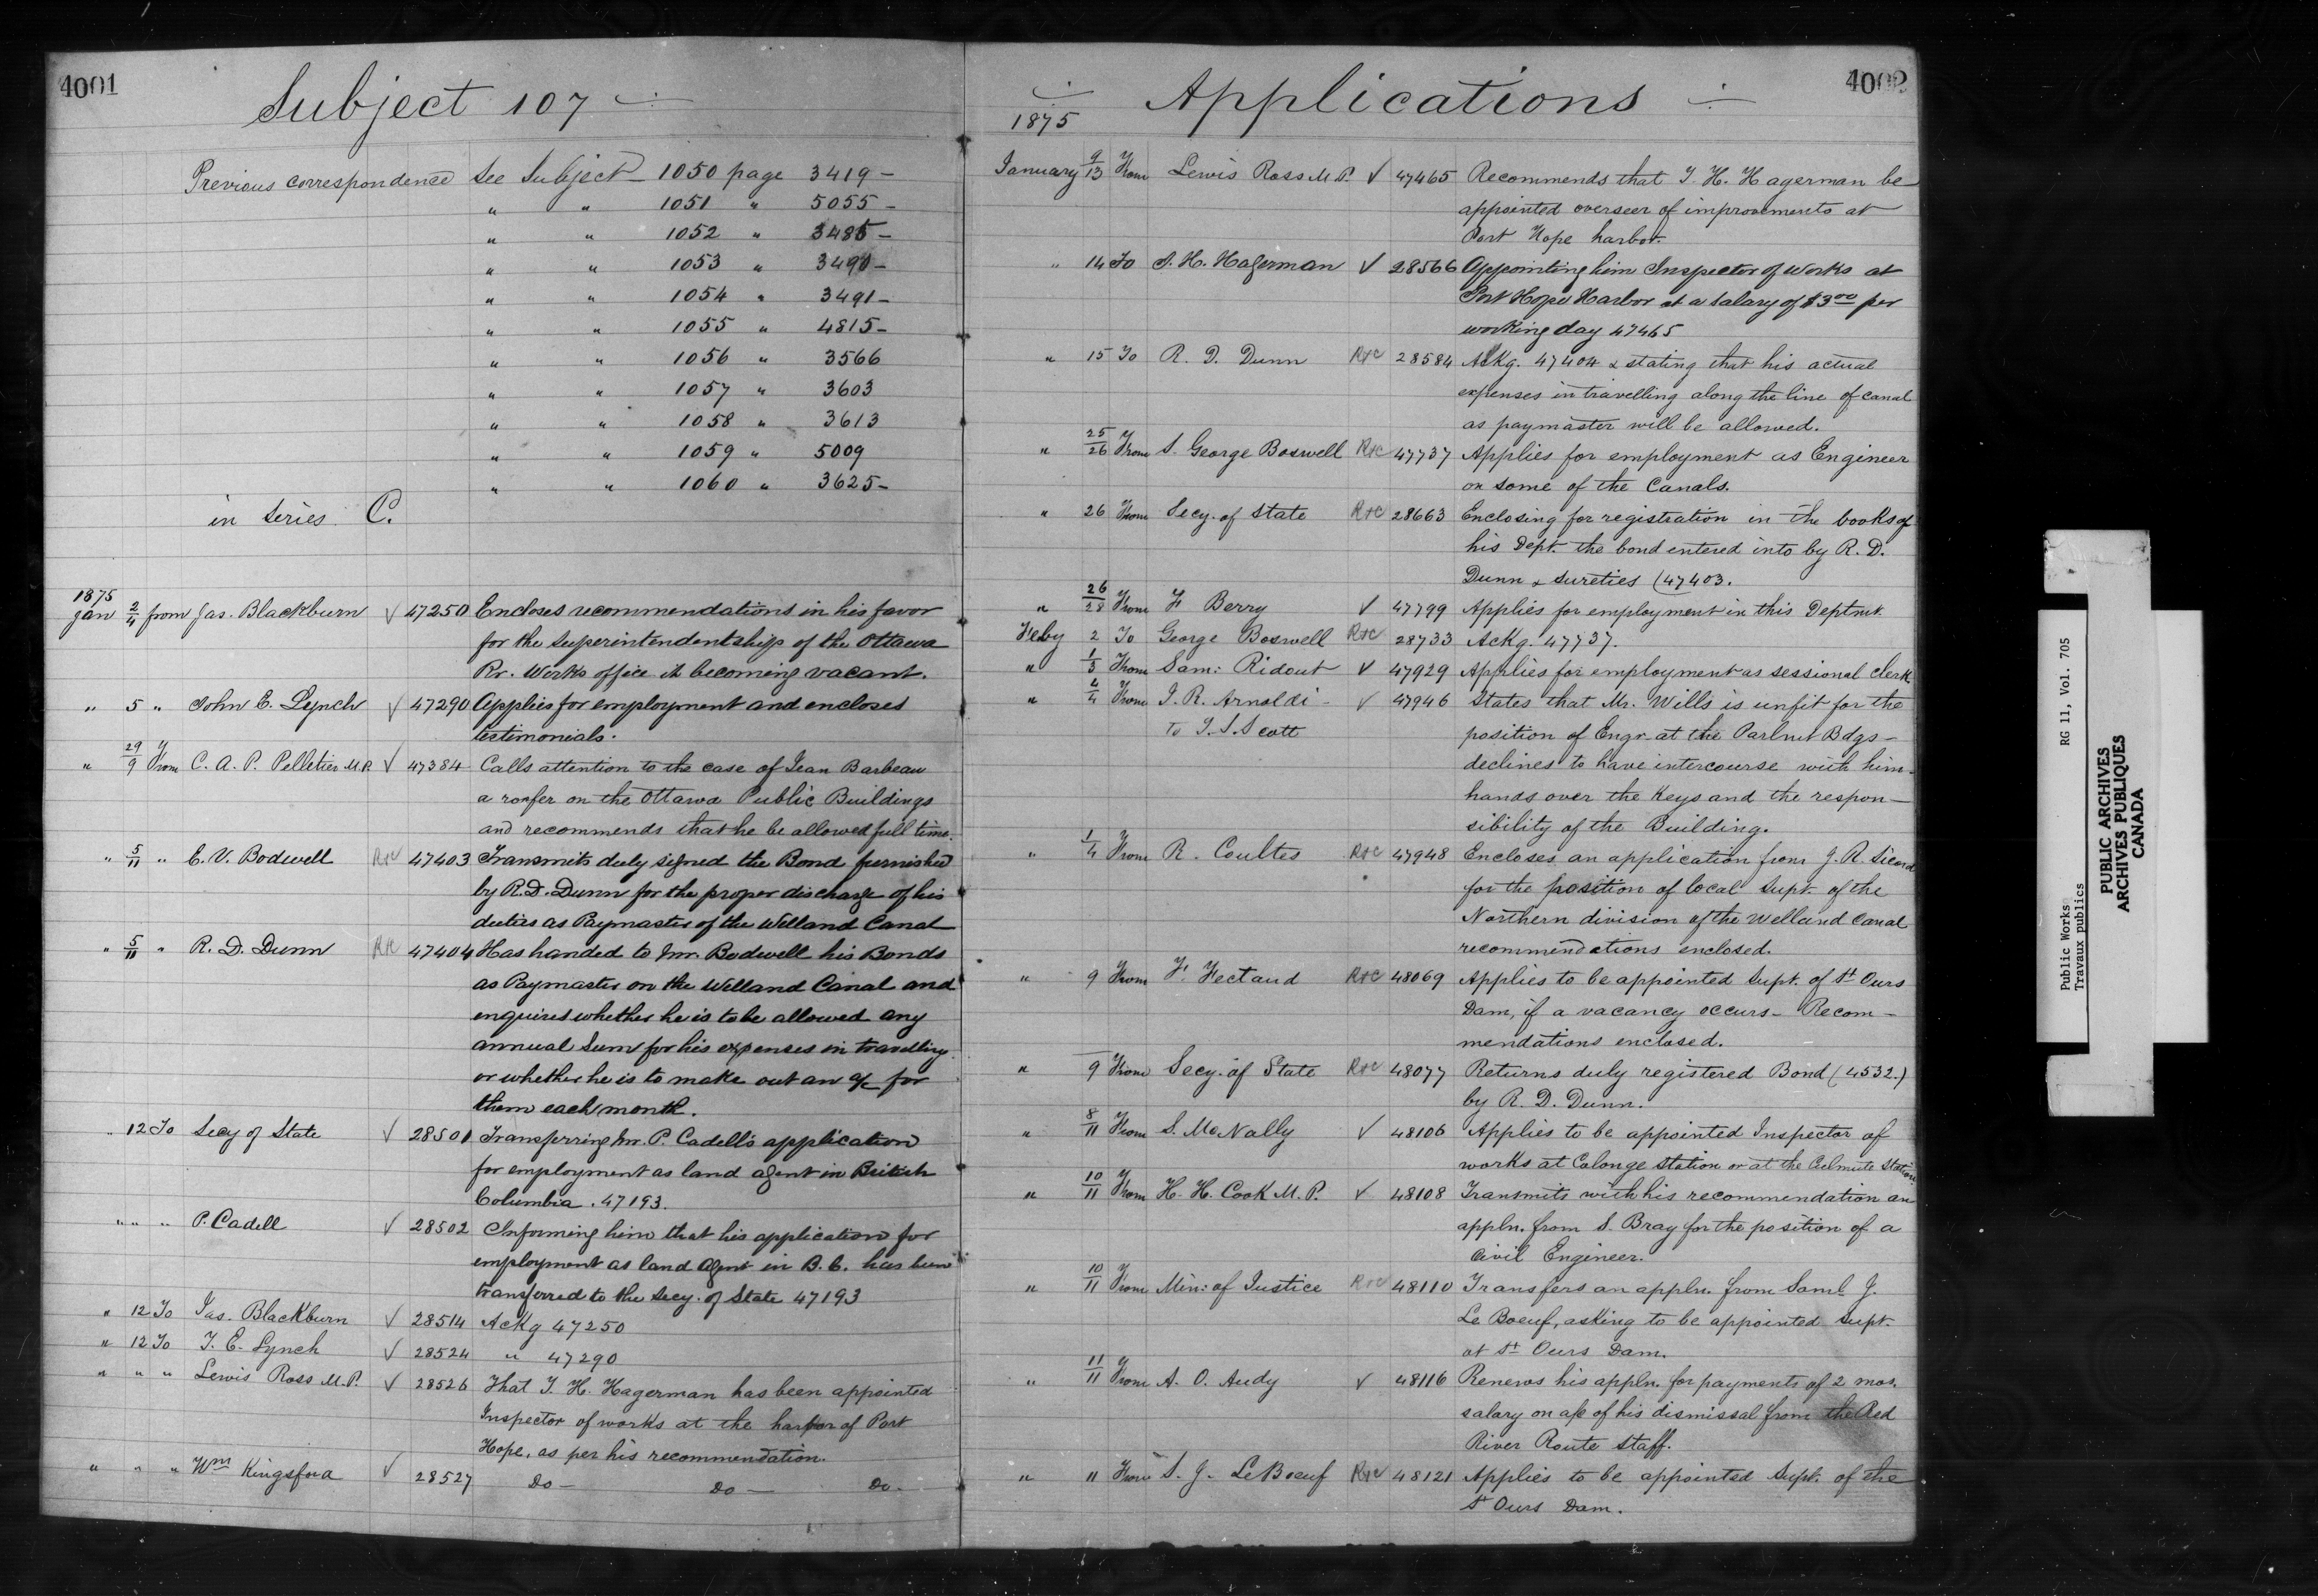 4001
Subject 107
Previous correspondence see Subject 1050 page 3419 -
" " 1051 " 5055 -
" " 1052 " 3485 -
" " 1053 " 3490 -
" " 1054 " 3491 -
" " 1055 " 4815 -
" " 1056 " 3566
" " 1057 " 3603
" " 1058 " 3613
" " 1059 " 5009
" " 1060 " 3625 -
in series C.
1875
Jan 2/4 from Jas. Blackburn √ 47250 Encloses recommendations in his favor
for the superintendentship of the Ottawa
Rr. Works office it becoming vacant.
" 5 " John E. Lynch √ 47290 Applies for employment and encloses
testimonials.
" 29/9 From C. A. P. Pelletier M.P. √ 47384 Calls attention to the case of Jean Barbeau
a roofer on the Ottawa Public Buildings
and recommends that he be allowed full time.
" 5/11 " E. V. Bodwell R+C 47403 Transmits duly signed the Bond furnished
by R. D. Dunn for the proper discharge of his
duties as Paymaster of the Welland Canal
" 5/11 " R. D. Dunn R+C 47404 Has handed to Mr. Bodwell his Bonds
as Paymaster on the Welland Canal and
enquires whether he is to be allowed any
annual sum for his expenses in travelling
or whether he is to make out an a/c for
them each month.
" 12 To Secy of State √ 28501 Transferring Mr. P. Cadell's application
for employment as land agent in British
Columbia. 47193.
" " " P. Cadell √ 28502 Informing him that his application for
employment as land agent in B. C. has been
transferred to the Secy. of State 47193
" 12 To Jas. Blackburn √ 28514 Ackg 47250
" 12 To J. E. Lynch √ 28524 " 47290
" " " Lewis Ross M.P. √ 28526 That J. H. Hagerman has been appointed
Inspector of works at the harbor of Port
Hope, as per his recommendation.
" " " Wm Kingsford √ 28527 Do - Do - Do -
4002
Applications
1875
January 9/13 From Lewis Ross M.P. √ 47465 Recommends that J. H. Hagerman be
appointed overseer of improvements at
Port Hope harbor.
" 14 To J. H. Hagerman √ 28566 Appointing him Inspector of Works at
Port Hope Harbor at a salary of $3.00 per
working day 47465
" 15 To R. D. Dunn R+C 28584 Ackg. 47404 & stating that his actual
expenses in travelling along the line of canal
as paymaster will be allowed.
" 25/26 From S. George Boswell R+C 47737 Applies for employment as Engineer
on some of the Canals.
" 26 From Secy. of State R+C 28663 Enclosing for registration in the books of
his Dept. the bond entered into by R. D.
Dunn & sureties (47403.
" 26/28 From F. Berry √ 47799 Applies for employment in this Deptmt.
Feby 2 To George Boswell R+C 28733 Ackg. 47737.
" 1/3 From Sam: Ridout √ 47929 Applies for employment as sessional clerk
" 4/4 From J. R. Arnoldi - √ 47946 States that Mr. Wills is unfit for the
To T. S. Scott position of Engr. at the Parlmt Bdgs -
declines to have intercourse with him -
hands over the Keys and the respon-
sibility of the Building.
" 1/4 From R. Coultes R+C 47948 Encloses an application from J. R. Sicord
for the position of local Supt. of the
Northern division of the Welland Canal
recommendations enclosed.
" 9 From F. Fectaud R+C 48069 Applies to be appointed Supt. of St Ours
Dam, if a vacancy occurs - Recom-
mendations enclosed.
" 9 From Secy. of State R+C 48077 Returns duly registered Bond (4532.)
by R. D. Dunn.
" 8/11 From S. McNally √ 48106 Applies to be appointed Inspector of
works at Calonge Station or at the Culmute Station
" 10/11 From H. H. Cook M.P. √ 48108 Transmits with his recommendation an
appln. from S. Bray for the position of a
Civil Engineer.
" 10/11 From Min: of Justice R+C 48110 Transfers an appln. from Saml. J.
Le Boeuf, asking to be appointed Supt.
at St Ours Dam.
" 11/11 From A. O. Audy √ 48116 Renews his appln. for payments of 2 mos.
salary on a/c of his dismissal from the Red
River Route Staff.
" 11 From S. J. LeBoeuf R+C 48121 Applies to be appointed Supt. of the
St Ours Dam.
Public Works RG 11, Vol. 705
Travaux publics
PUBLIC ARCHIVES
ARCHIVES PUBLIQUES
CANADA